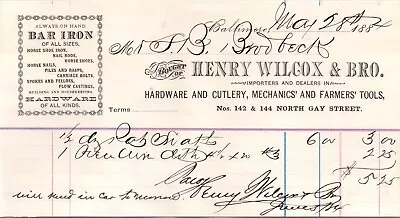 ALWAYS ON HAND
BAR IRON
OF ALL SIZES,
HORSE SHOE IRON,
NAIL RODS,
HORSE SHOES,
HORSE NAILS,
FILES AND RASPS,
CARRIAGE BOLTS,
SPOKES AND FELLOES,
PLOW CASTINGS,
BUILDING AND HOUSEKEEPING
HARDWARE
OF ALL KINDS.
Baltimore, May 28th 1884
Mr. F. B. Brodbeck
BOUGHT OF HENRY WILCOX & BRO.
IMPORTERS AND DEALERS IN
HARDWARE AND CUTLERY, MECHANICS' AND FARMERS' TOOLS,
Terms Nos. 142 & 144 NORTH GAY STREET.
1/2 dz 6 00 3 00
1 #3 2 25
$ 5 25
Henry Wilcox & Bro
will send in car